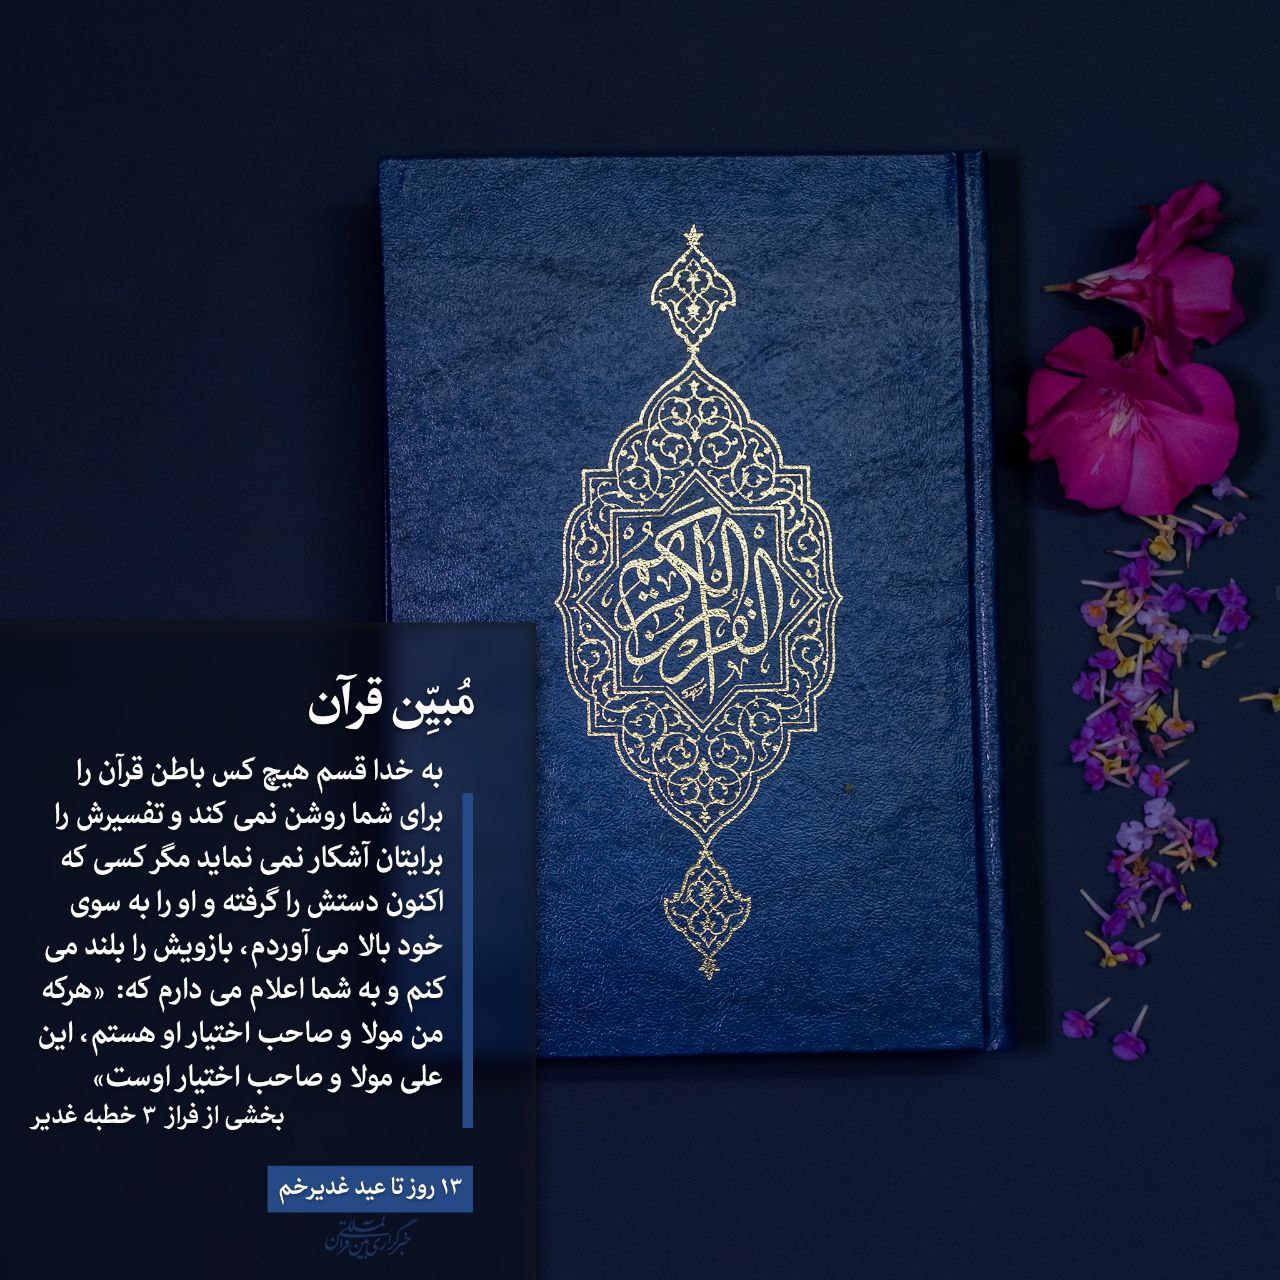 القرآن الکریم
مُبیِّن قرآن
به خدا قسم هیچ کس باطن قرآن را
برای شما روشن نمی کند و تفسیرش را
برایتان آشکار نمی نماید مگر کسی که
اکنون دستش را گرفته و او را به سوی
خود بالا می آوردم، بازویش را بلند می
کنم و به شما اعلام می دارم که: «هرکه
من مولا و صاحب اختیار او هستم، این
علی مولا و صاحب اختیار اوست»
بخشی از فراز ۳ خطبه غدیر
۱۳ روز تا عید غدیرخم
خبرگزاری بین المللی قرآن